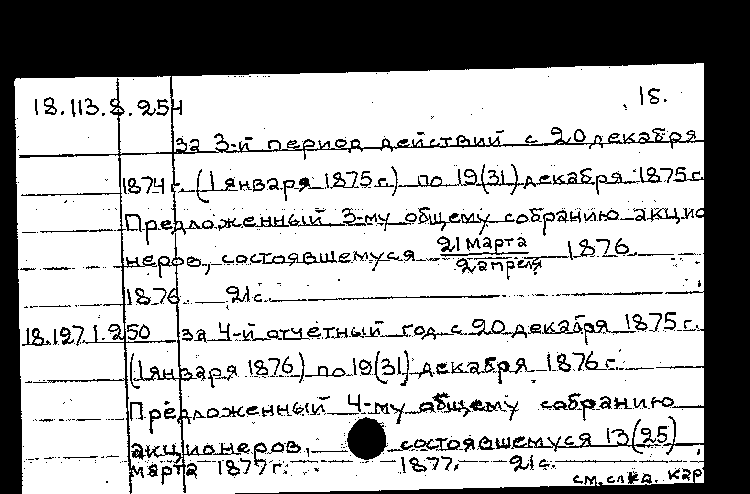 18.113.8.254 15.
за 3-й период действий с 20 декабря
1874 г. (1 января 1875 г.) по 19(31) декабря 1875 г.
Предложенный 3-му общему собранию акцио
неров, состоявшемуся 21 марта 1876.
2 апреля
1876. 21 с.
18.197.1.250 за 4-й отчетный год с 20 декабря 1875 г.
(1 января 1876) по 19(31) декабря 1876 г.
Предложенный 4-му общему собранию
акционеров, состоявшемуся 13(25)
марта 1877 г. 1877. 21 с.
см. след. кар